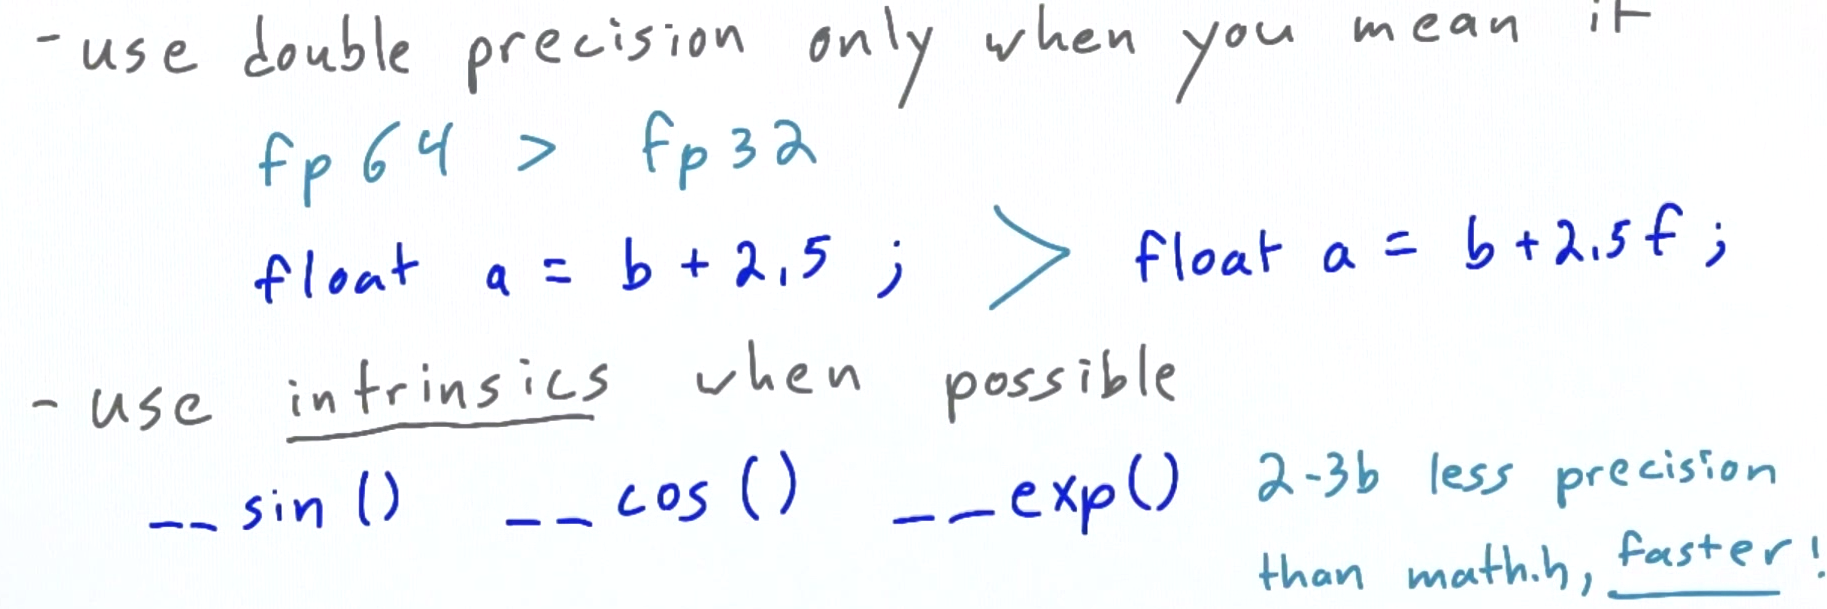 - use double precision only when you mean it
fp64 > fp32
float a = b + 2.5 ; > float a = b + 2.5f ;
- use intrinsics when possible
__sin() __cos() __exp() 2-3b less precision
than math.h, faster!